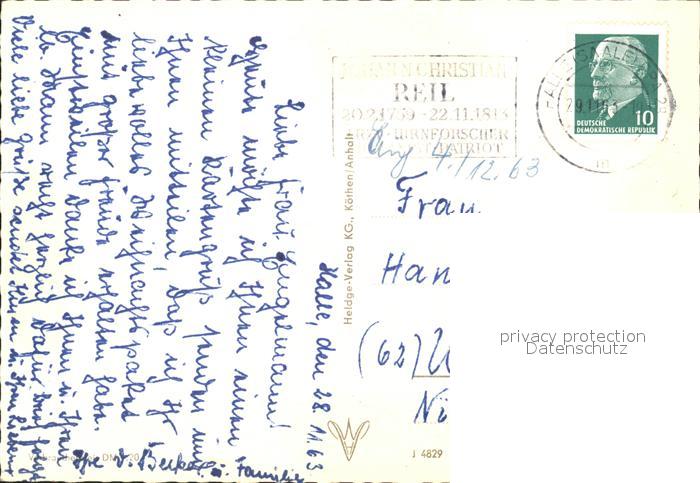 Halle, den 28.11.63
Liebe Frau Engelmann!
Heute möchte ich Ihnen einen
kleinen Kartengruß senden und
Ihnen mitteilen, daß ich Ihr
liebevolles Weihnachtspaket
mit großer Freude erhalten habe.
Einstweilen danke ich Ihnen u. Ihrem
lb. Mann recht herzlich dafür. Brief folgt.
Viele liebe Grüße sendet Ihnen u. Ihrem lieben
Ihre V. Becker u. Familie
JOHANN CHRISTIAN
REIL
20.2.1759 - 22.11.1813
HIRNFORSCHER
PATRIOT
HALLE (SAALE)
29.11.63
10
DEUTSCHE
DEMOKRATISCHE REPUBLIK
4./12.63
Frau
Han
(62)
Heldge-Verlag KG., Köthen/Anhalt
J 4829
privacy protection
Datenschutz